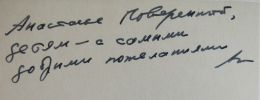 Анастасье Поверенной,
детям – с самыми
добрыми пожеланиями